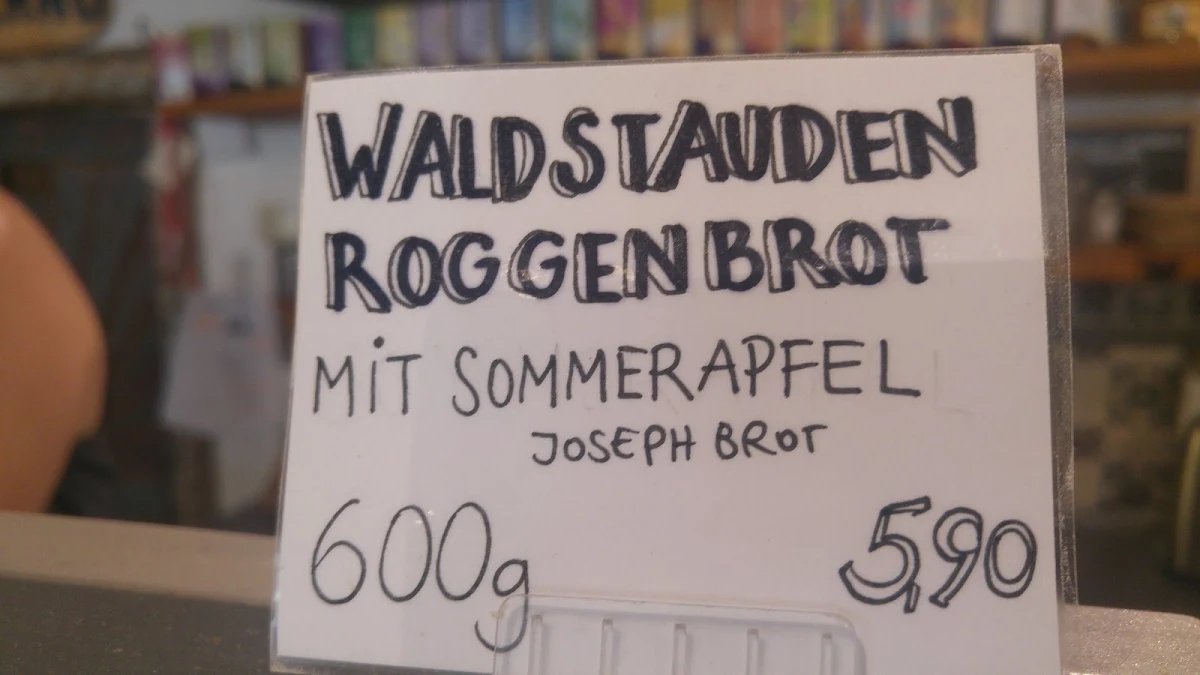 WALDSTAUDEN
ROGGENBROT
MIT SOMMERAPFEL
JOSEPH BROT
600g 5,90